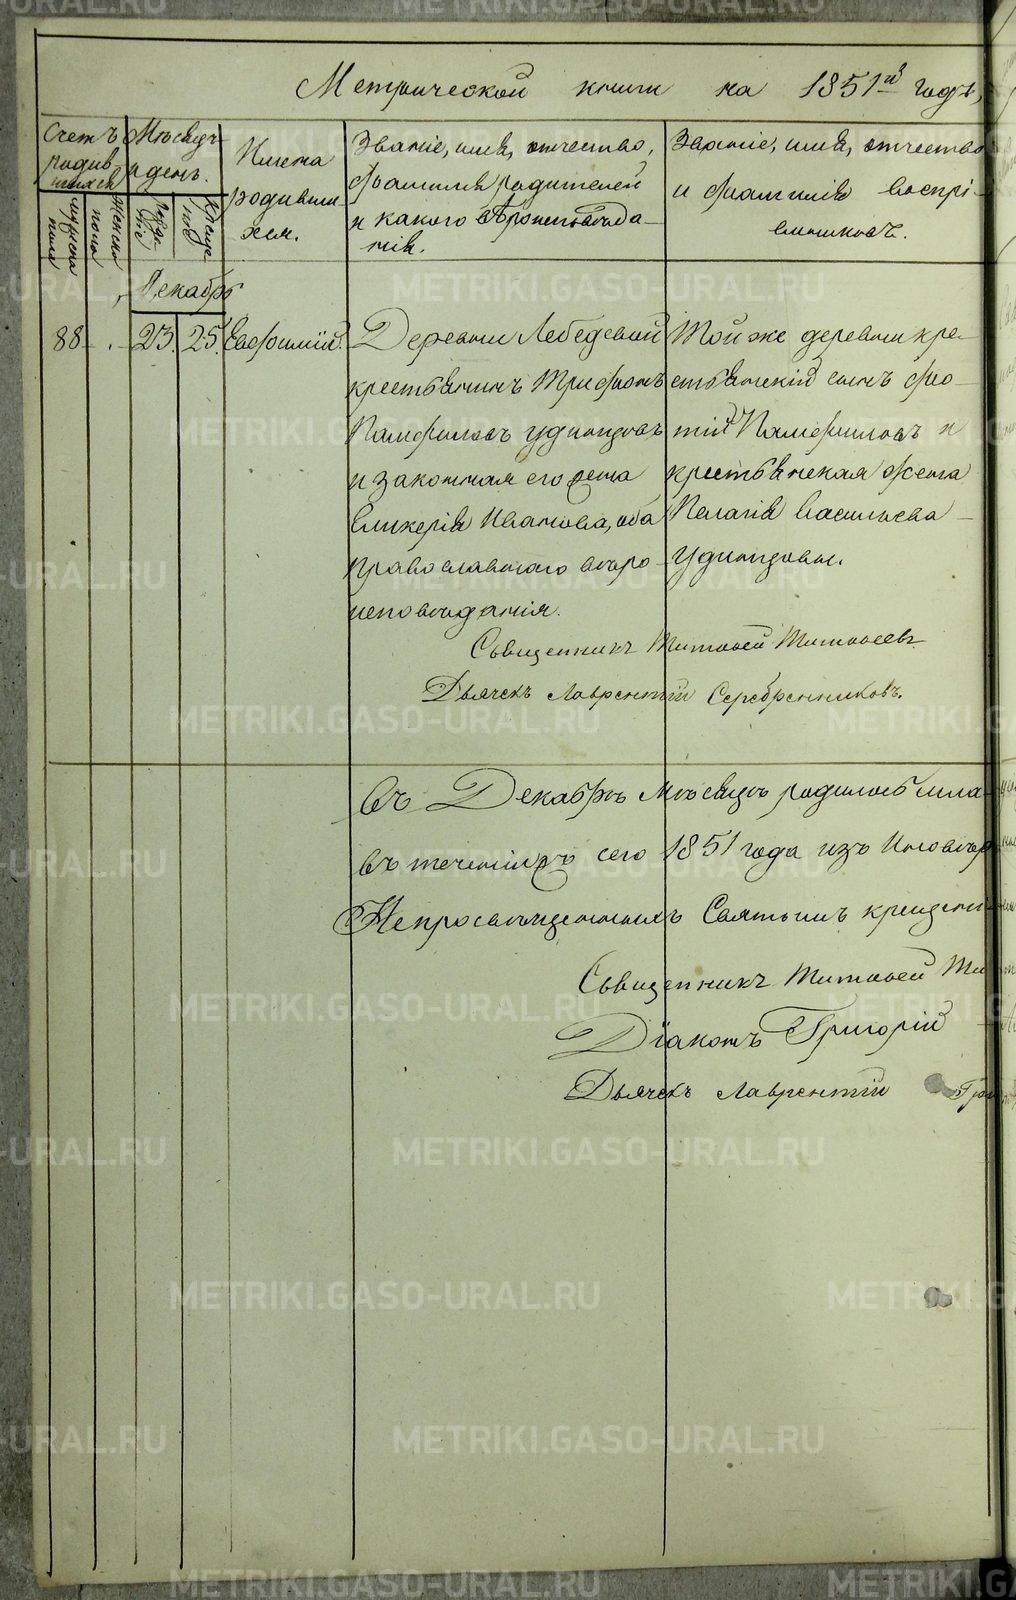 Метрической книги на 1851й годъ,
Счетъ родившихся
Мѣсяцъ и день.
Имена родившихся.
Званіе, имя, отчество, фамилія родителей и какого вѣроисповѣданія.
Званіе, имя, отчество и фамилія воспріемниковъ.
мужеска пола
женска пола
рожденіе
крещеніе
Декабрь
88. 23. 25. Евфимій.
Деревни Лебедевой
крестьянинъ Трифонъ
Памфиловъ Удинцовъ
и законная его жена
Гликерія Иванова, оба
православнаго вѣро-
исповѣданія.
Той же деревни кре-
стьянскій сынъ Фео-
тій Памфиловъ и
крестьянская жена
Пелагія Васильева
Удинцовы.
Священникъ Тимофей Тимофеевъ
Дьячекъ Лаврентій Серебренниковъ.
Въ Декабрѣ Мѣсяцѣ родилось
въ теченіи сего 1851 года изъ Иновѣр
Непросвѣщенныхъ Святымъ крещені
Священникъ Тимофей Ти
Діаконъ Григорій
Дьячекъ Лаврентій
METRIKI.GASO-URAL.RU